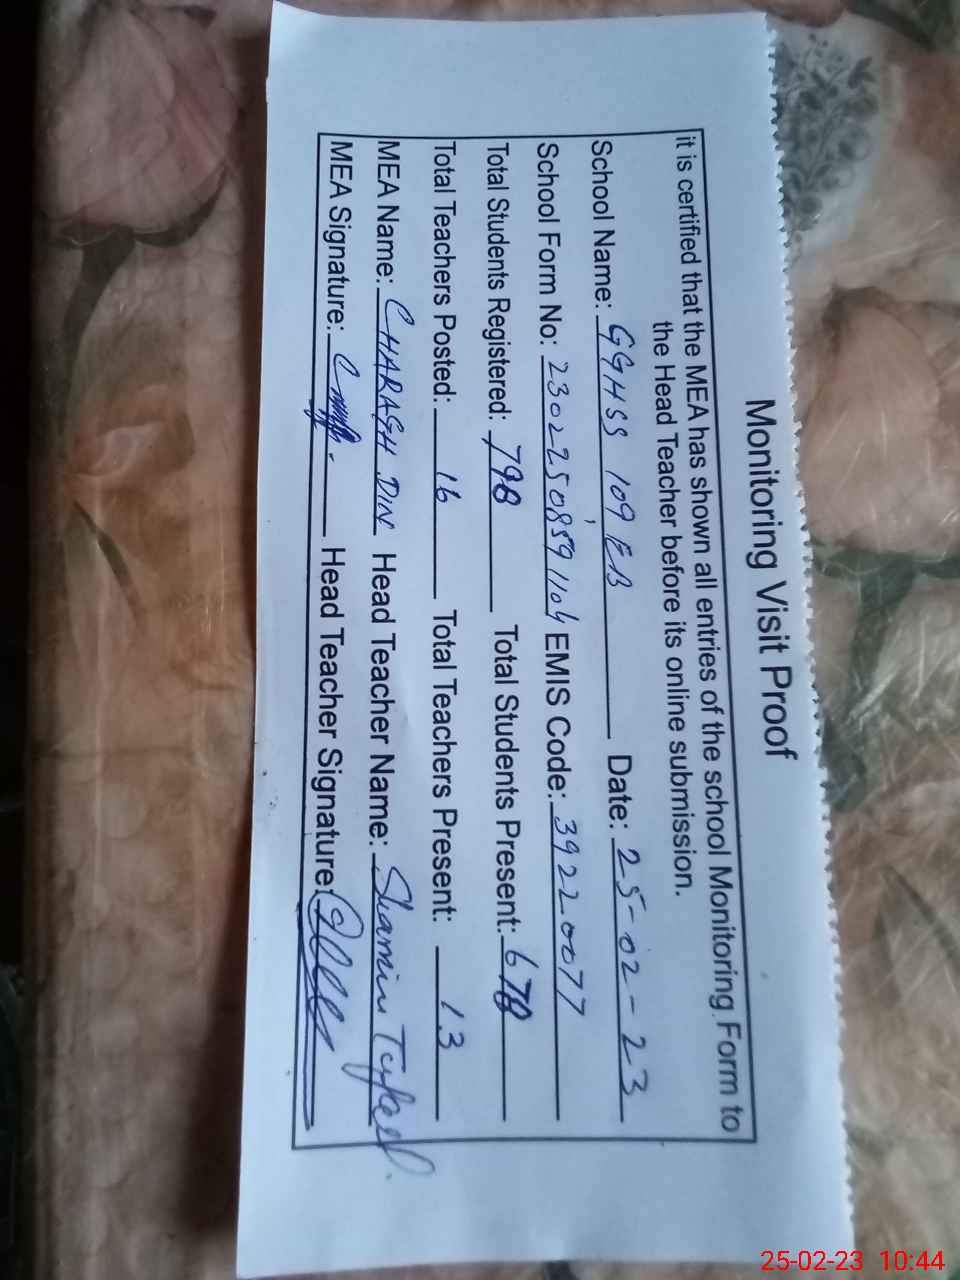 Monitoring Visit Proof
it is certified that the MEA has shown all entries of the school Monitoring Form to
the Head Teacher before its online submission.
School Name: GGHSS 109, EB Date: 25-02-23
School Form No: 23022508591104 EMIS Code: 39220077
Total Students Registered: 798 Total Students Present: 678
Total Teachers Posted: 16 Total Teachers Present: 13
MEA Name: CHARAGH DIN Head Teacher Name: Shamim
MEA Signature: Head Teacher Signature:
25-02-23 10:44